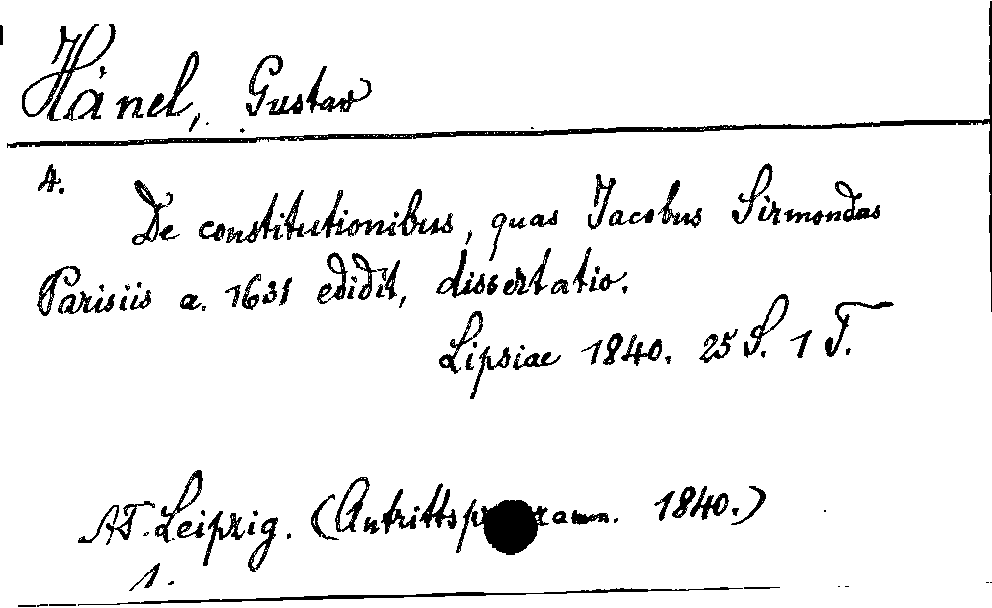 Hänel, Gustav
4.
De constitutionibus, quas Jacobus Sirmondus
Parisiis a. 1631 edidit, dissertatio.
Lipsiae 1840. 25 S. 1 T.
AT. Leipzig. (Antrittsprogramm. 1840.)
1.